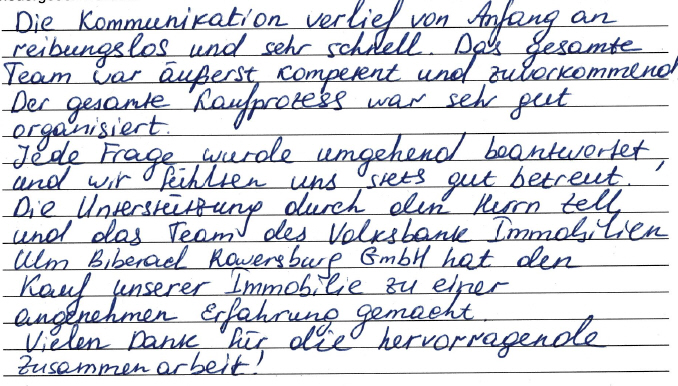 Die Kommunikation verlief von Anfang an
reibungslos und sehr schnell. Das gesamte
Team war äußerst kompetent und zuvorkommend
Der gesamte Kaufprozess war sehr gut
organisiert.
Jede Frage wurde umgehend beantwortet,
und wir fühlten uns stets gut betreut.
Die Unterstützung durch den Herrn Zell
und das Team des Volksbank Immobilien
Ulm Biberach Ravensburg GmbH hat den
Kauf unserer Immobilie zu einer
angenehmen Erfahrung gemacht.
Vielen Dank für die hervorragende
Zusammenarbeit!